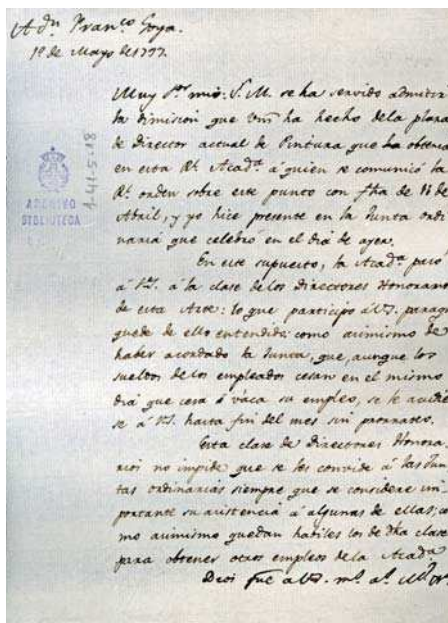 A Dn. Franco. Goya.
1º de Mayo de 1797.
Muy Sor. mio: S. M. se ha servido admitir
la dimision que Vm ha hecho de la plaza
de Director actual de Pintura que ha obtenido
en esta Rl. Acada. á quien se comunicó la
Rl. orden sobre este punto con fha de
Abril, y yo hice presente en la Junta ordi
naria que celebró en el dia de ayer.
En este supuesto, la Acada. pasó
á V.S. á la clase de los Directores Honorarios
de esta Arte: lo que participo á V.S. paraq
quede de ello entendido: como asimismo de
haber acordado la Junta, que, aunque los
sueldos de los empleados cesan en el mismo
dia que cesa ó vaca su empleo, se le acudie
se á V.S. hasta fin del mes sin prorrateo.
Esta clase de Directores Honora
rios no impide que se les convide á las Jun
tas ordinarias siempre que se considere im
portante su asistencia á algunas de ellas; co
mo asimismo quedan habiles los de dha clase
para obtener otros empleos de la Acada.
Dios gue á V.S. ms. as.
ARCHIVO
BIBLIOTECA
1-41-5-18